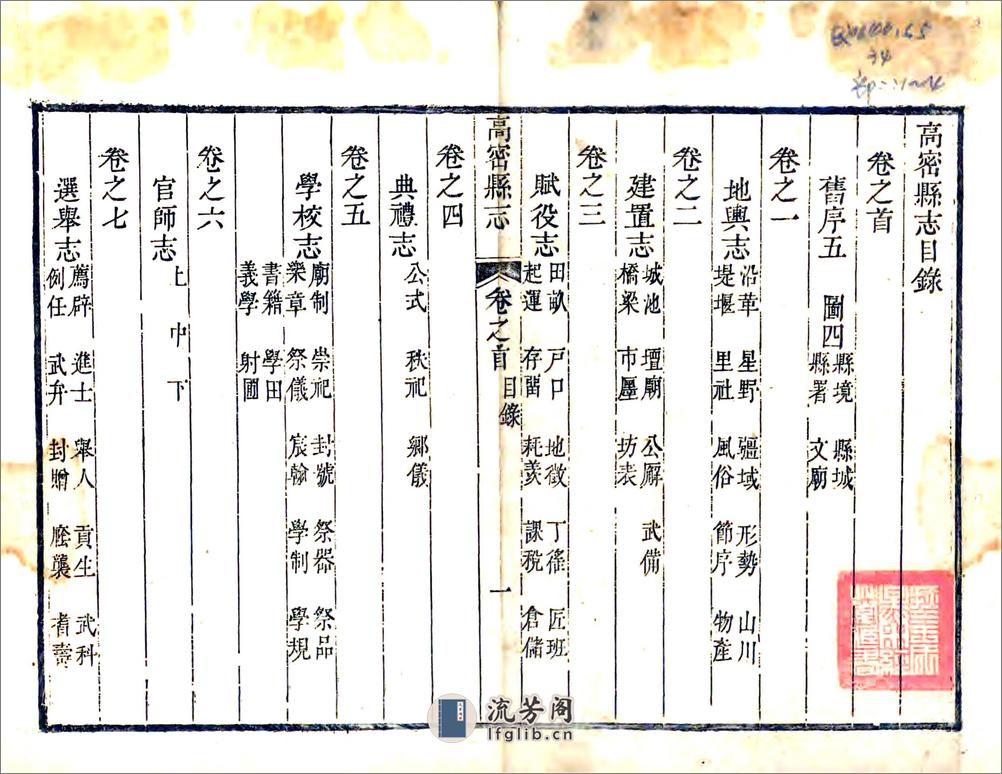 高密縣志目錄
卷之首
舊序五 圖四 縣境 縣城
縣署 文廟
卷之一
地輿志 沿革 星野 疆域 形勢 山川
堤堰 里社 風俗 節序 物產
卷之二
建置志 城池 壇廟 公廨 武備
橋梁 市廛 坊表
卷之三
賦役志 田畝 戸口 地徵 丁徭 匠班
起運 存留 耗羨 課稅 倉儲
高密縣志 卷之首 目錄 一
卷之四
典禮志 公式 秩祀 鄉儀
卷之五
學校志 廟制 崇祀 封號 祭器 祭品
樂章 祭儀 宸翰 學制 學規
書籍 學田
義學 射圃
卷之六
官師志 上 中 下
卷之七
選舉志 薦辟 進士 舉人 貢生 武科
例任 武弁 封贈 廕襲 耆壽
流芳阁
lfglib.cn